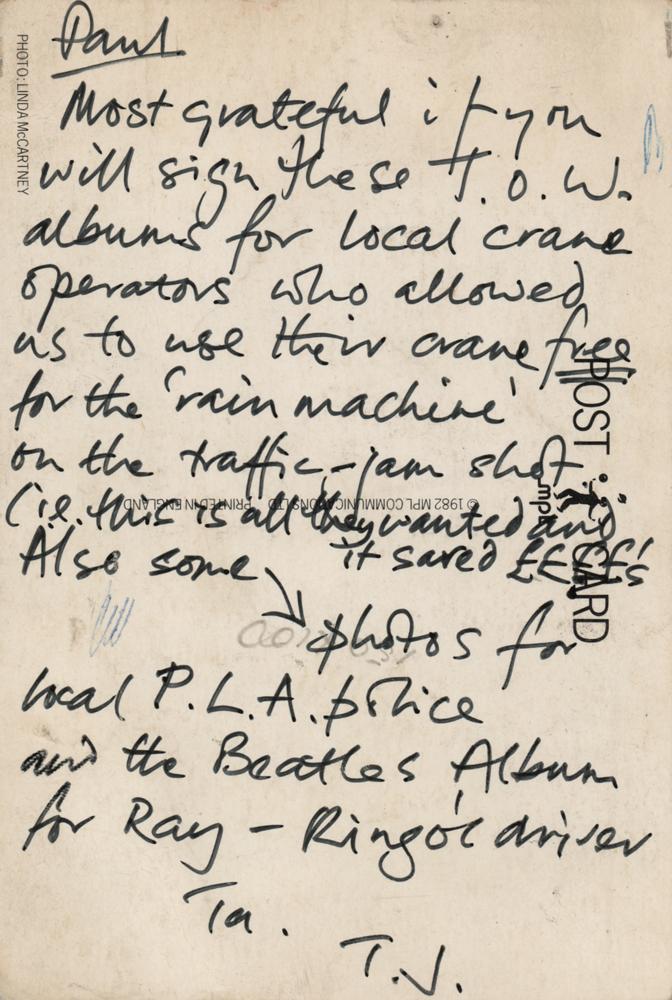 Paul
Most grateful if you
will sign these T.O.W.
albums for local crane
operators who allowed
us to use their crane free
for the 'rain machine'
on the traffic-jam shot
(i.e. this is all they wanted and
it saved £££££'s
Also some
photos for
local P.L.A. police
and the Beatles Album
for Ray – Ringo's driver
Ta.
T.J.
PHOTO: LINDA McCARTNEY
POST CARD
mpl
© 1982 MPL COMMUNICATIONS LTD PRINTED IN ENGLAND